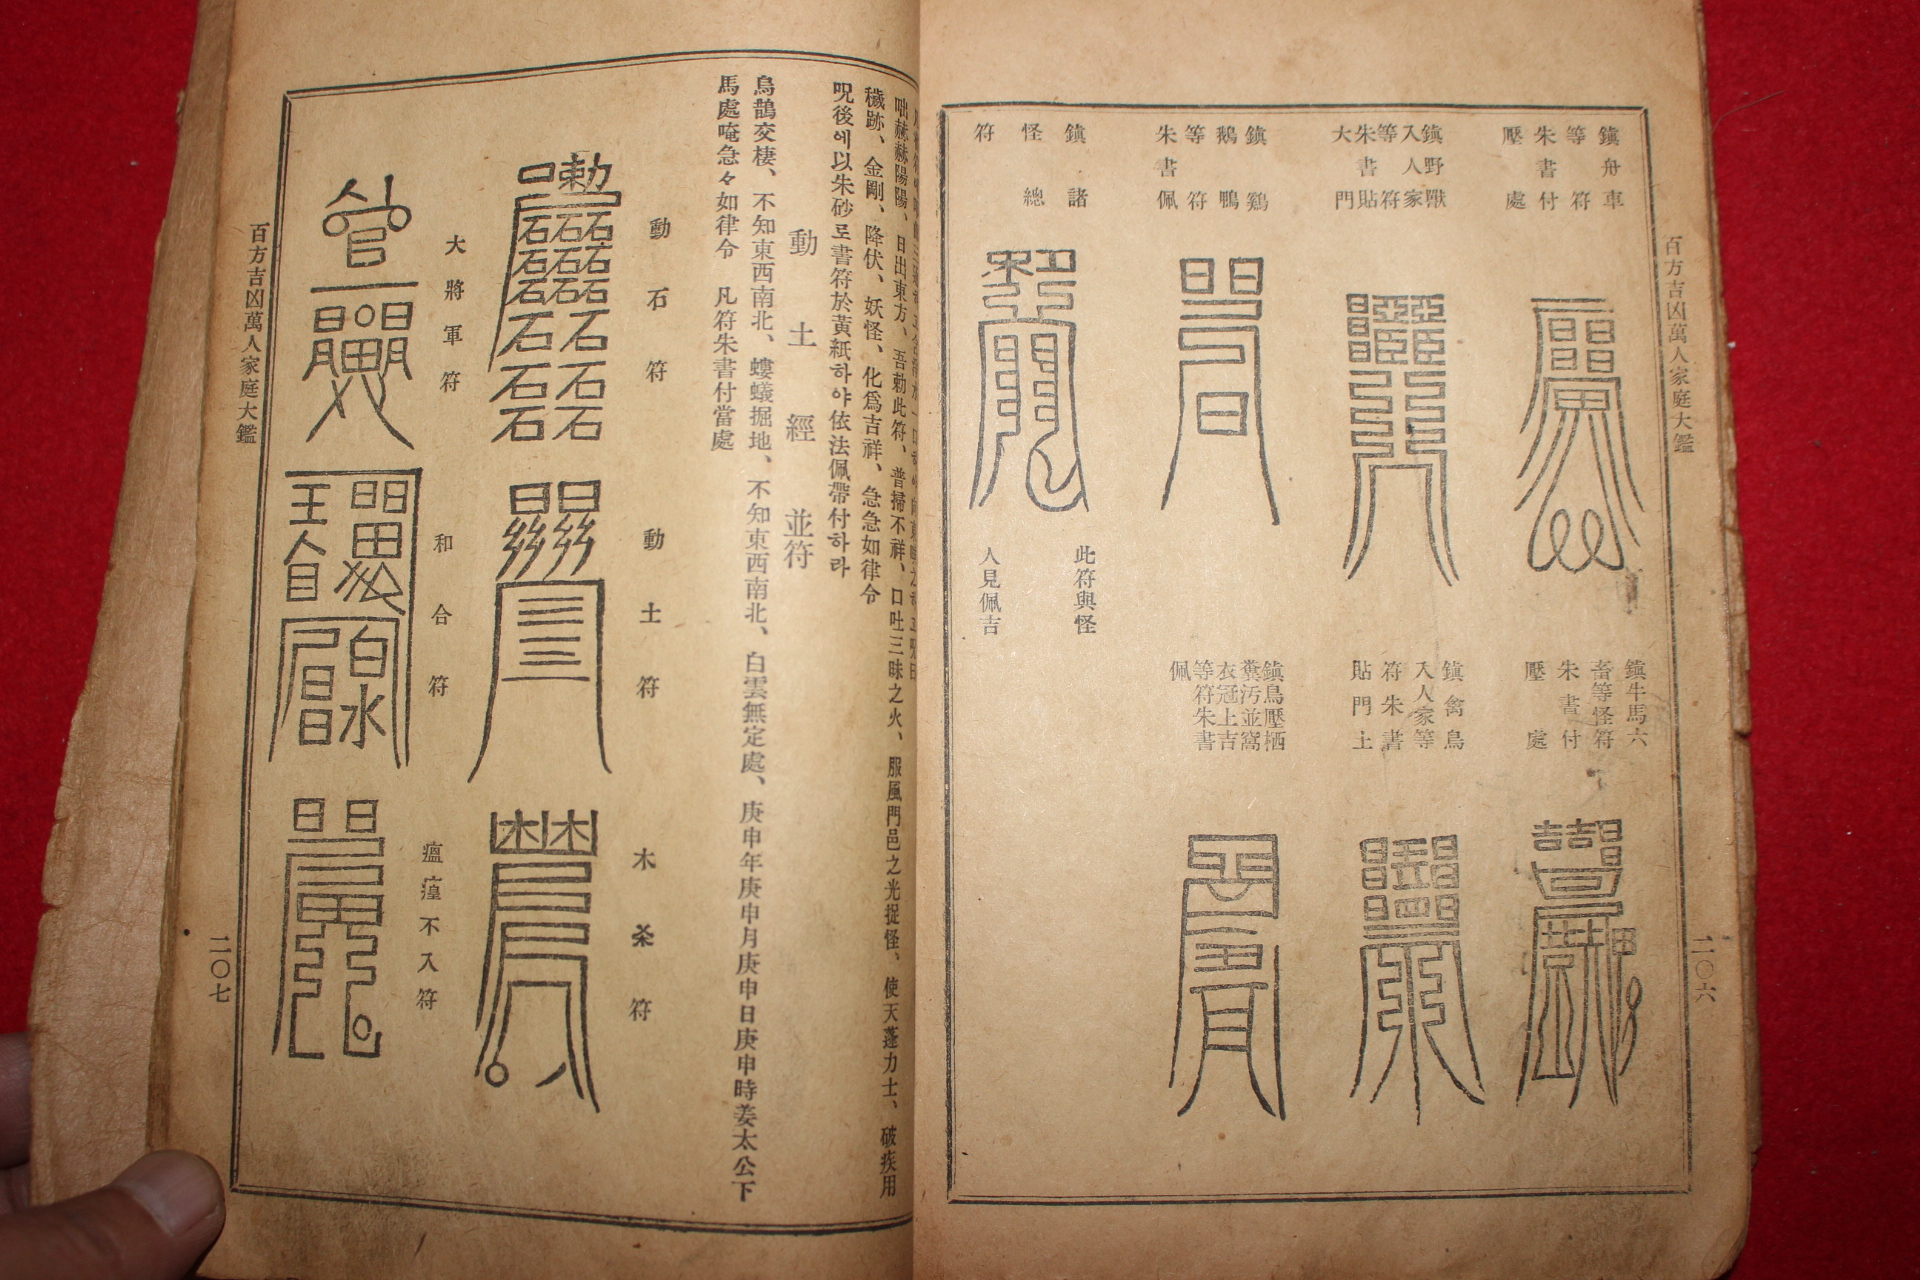 百方吉凶萬人家庭大鑑
二〇六
鎭舟車
等符
朱書付
壓處
鎭野獸
入人家
等符
朱書貼
大門
鎭鷄
鵝鴨
等符
朱書佩
鎭諸
怪總
符
此符與怪
人見佩吉
鎭牛馬六
畜等怪符
朱書付
壓處
鎭禽鳥
入人家等
符朱書
貼門上
鎭鳥壓栖
糞汚並窩
衣冠上吉
等符朱書
佩
咄赫赫陽陽、日出東方、吾勅此符、普掃不祥、口吐三昧之火、服風門邑之光捉怪、使天蓬力士、破疾用
穢跡、金剛、降伏、妖怪、化爲吉祥、急急如律令
呪後에以朱砂로書符於黃紙하야依法佩帶付하라
動土經並符
烏鵲交棲、不知東西南北、螻蟻掘地、不知東西南北、白雲無定處、庚申年庚申月庚申日庚申時姜太公下
馬處唵急々如律令 凡符朱書付當處
動石符
動土符
木杀符
大將軍符
和合符
瘟𤺑不入符
百方吉凶萬人家庭大鑑
二〇七